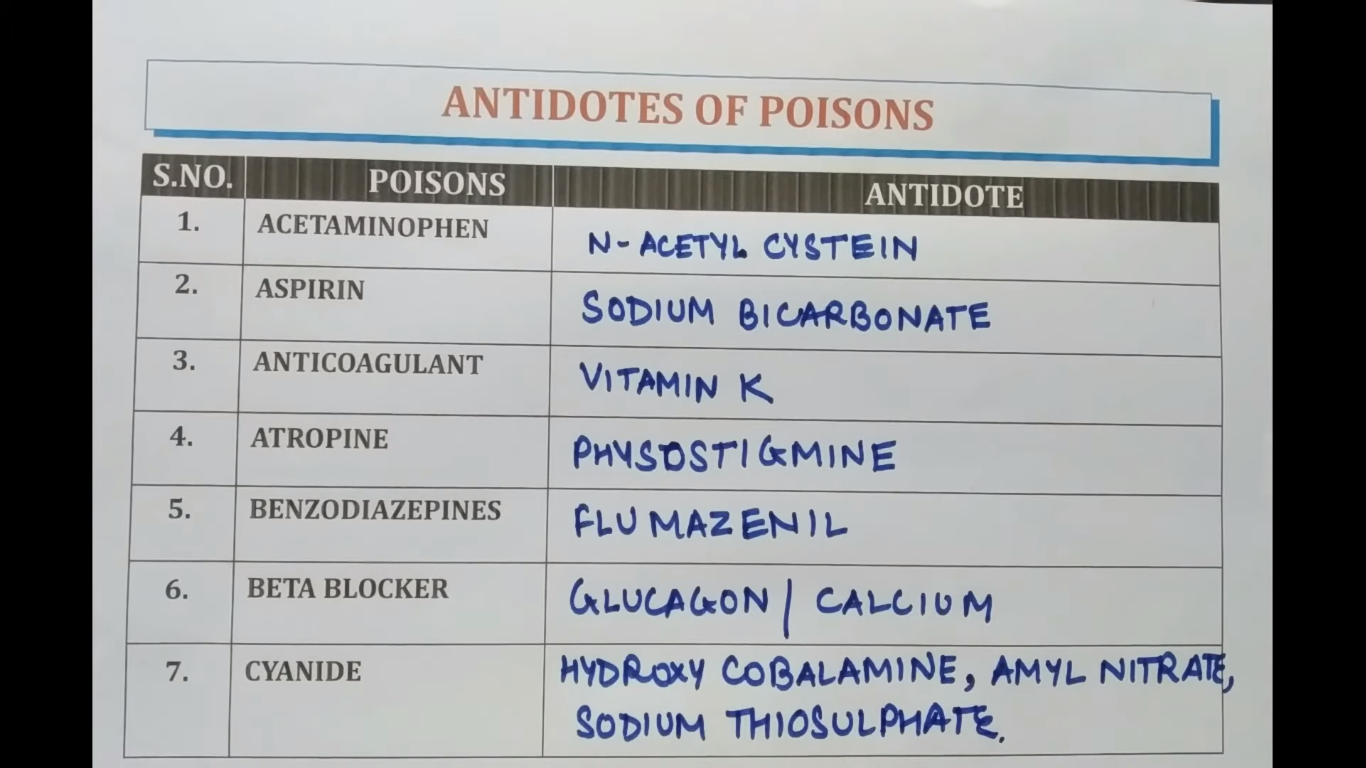 ANTIDOTES OF POISONS
S.NO. POISONS ANTIDOTE
1. ACETAMINOPHEN N-ACETYL CYSTEIN
2. ASPIRIN SODIUM BICARBONATE
3. ANTICOAGULANT VITAMIN K
4. ATROPINE PHYSOSTIGMINE
5. BENZODIAZEPINES FLUMAZENIL
6. BETA BLOCKER GLUCAGON / CALCIUM
7. CYANIDE HYDROXY COBALAMINE, AMYL NITRATE,
SODIUM THIOSULPHATE.